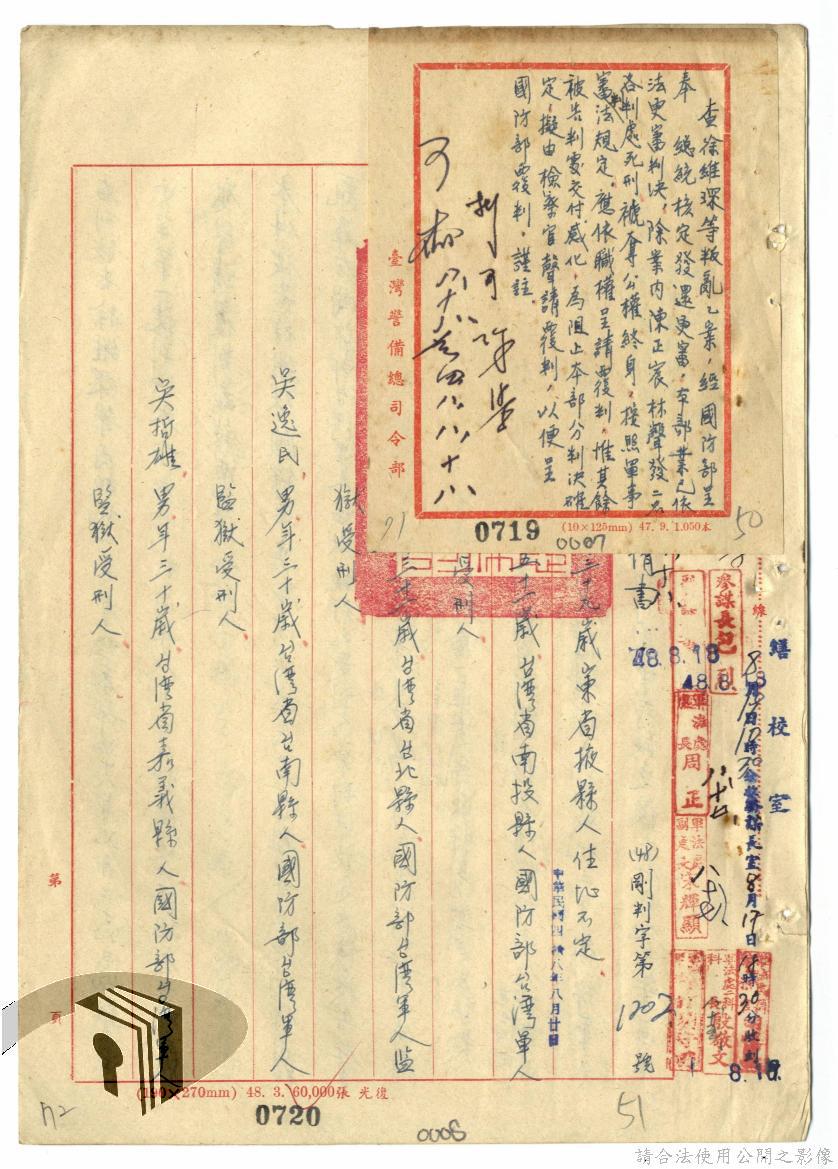 查徐維琛等叛亂乙案，經國防部呈
奉　總統核定發還更審，本部業已依
法更審判決，除案內陳正宸林聲發二名
各判處死刑褫奪公權終身，按照軍事
審判法規定，應依職權呈請覆判，惟其餘
被告判處交付感化，為阻止本部分判決確
定，擬由檢察官聲請覆判，以便呈
國防部覆判，謹註。
可
臺灣警備總司令部
71
0719
(10×125mm) 47. 9. 1.050本
0007
50
繕校室
參謀長
48.8.18
48.8.
軍法處處長周正
軍法處副處長宋輝顯
8月17日18時30分收到
8月17日
殷敬文
(48)剛判字第1202號
中華民國四十八年八月廿日
三十九歲山東省掖縣人住址不定
五十一歲台灣省南投縣人國防部台灣軍人
受刑人
歲台灣省台北縣人國防部台灣軍人監
獄受刑人
吳逸民　男年三十歲台灣省台南縣人國防部台灣軍人
監獄受刑人
吳哲雄　男年三十歲台灣省嘉義縣人國防部台灣軍人
監獄受刑人
第　頁
(190×270mm) 48. 3. 60,000張 光復
72
0720
0008
51
請合法使用公開之影像